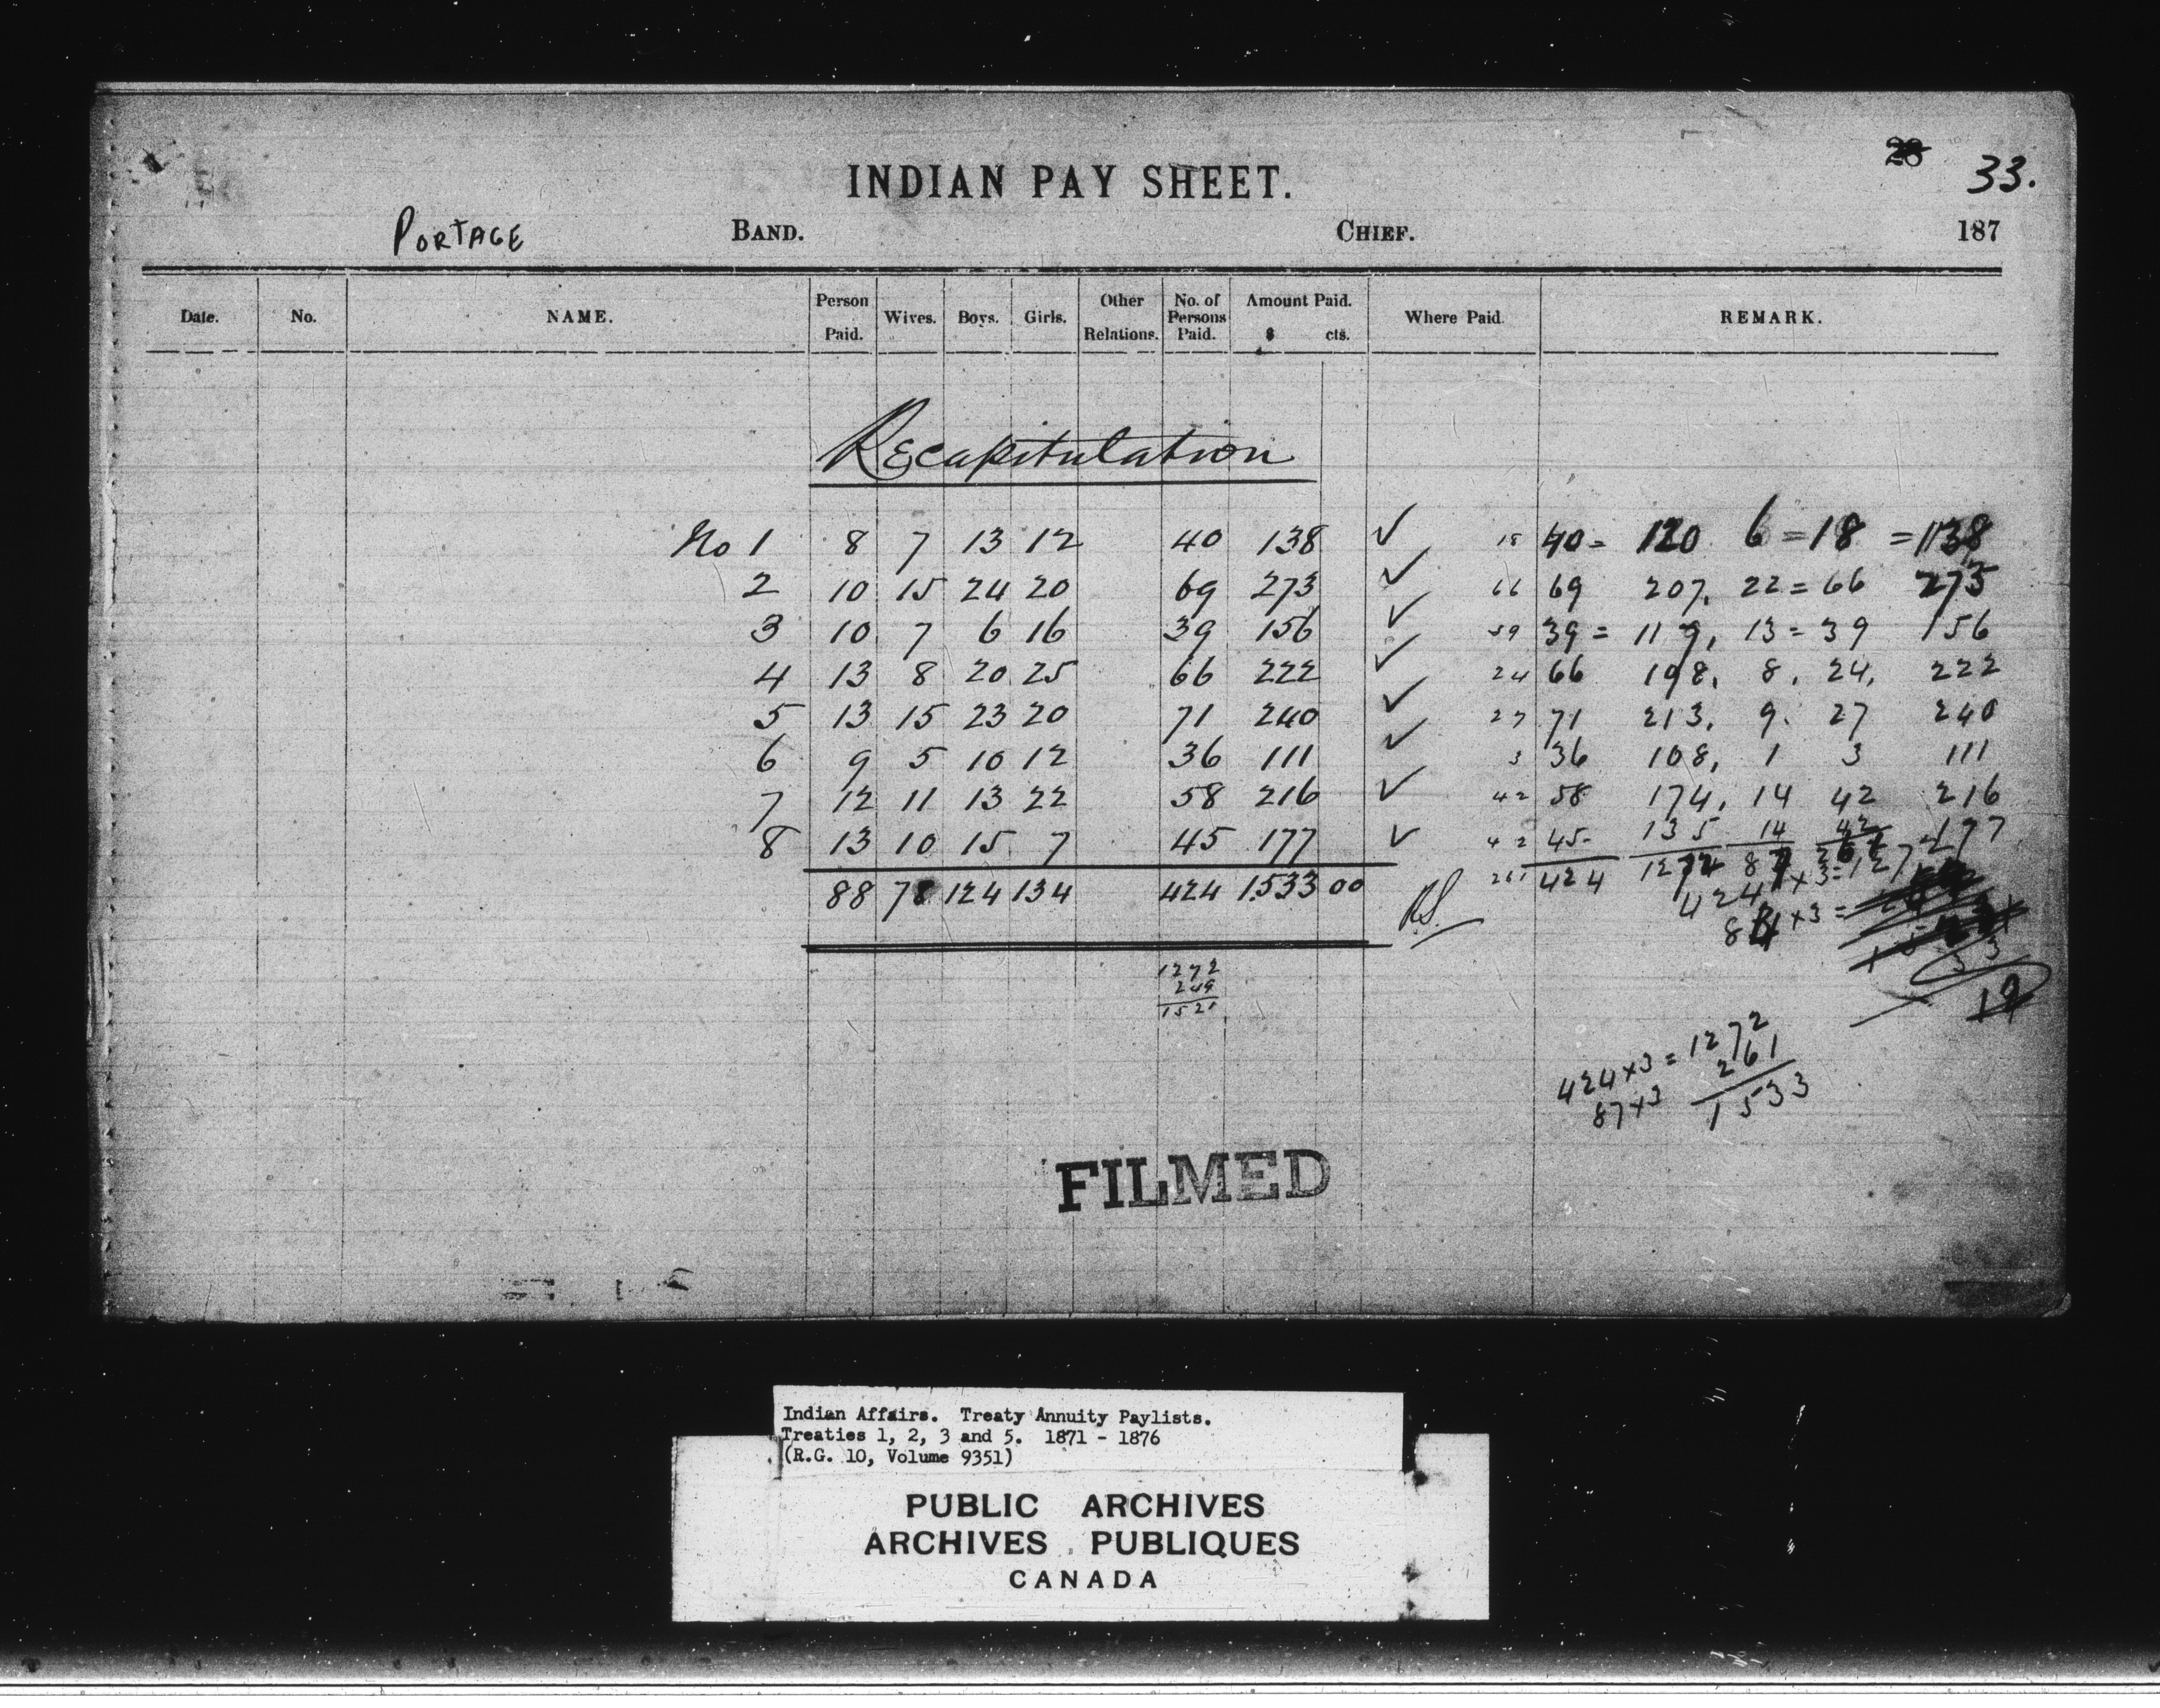 28 33.
INDIAN PAY SHEET.
PORTAGE BAND. CHIEF. 187
Date. No. NAME. Person Paid. Wives. Boys. Girls. Other Relations. No. of Persons Paid. Amount Paid. $ cts. Where Paid REMARK.
Recapitulation
No 1 8 7 13 12 40 138 ✓ 18 40 = 120 6 = 18 = 138
2 10 15 24 20 69 273 ✓ 66 69 207, 22 = 66 273
3 10 7 6 16 39 156 ✓ 39 39 = 117, 13 = 39 156
4 13 8 20 25 66 222 ✓ 24 66 198, 8, 24, 222
5 13 15 23 20 71 240 ✓ 27 71 213, 9. 27 240
6 9 5 10 12 36 111 ✓ 3 36 108, 1 3 111
7 12 11 13 22 58 216 ✓ 42 58 174, 14 42 216
8 13 10 15 7 45 177 ✓ 42 45- 135 14 42 177
88 78 124 134 424 1533 00 RS. 261 424 1272 87 261
424 x 3 = 127
x 3 =
1272
249
1521
424 x 3 = 1272
87 x 3 261
1533
FILMED
Indian Affairs. Treaty Annuity Paylists.
Treaties 1, 2, 3 and 5. 1871 - 1876
(R.G. 10, Volume 9351)
PUBLIC ARCHIVES
ARCHIVES PUBLIQUES
CANADA